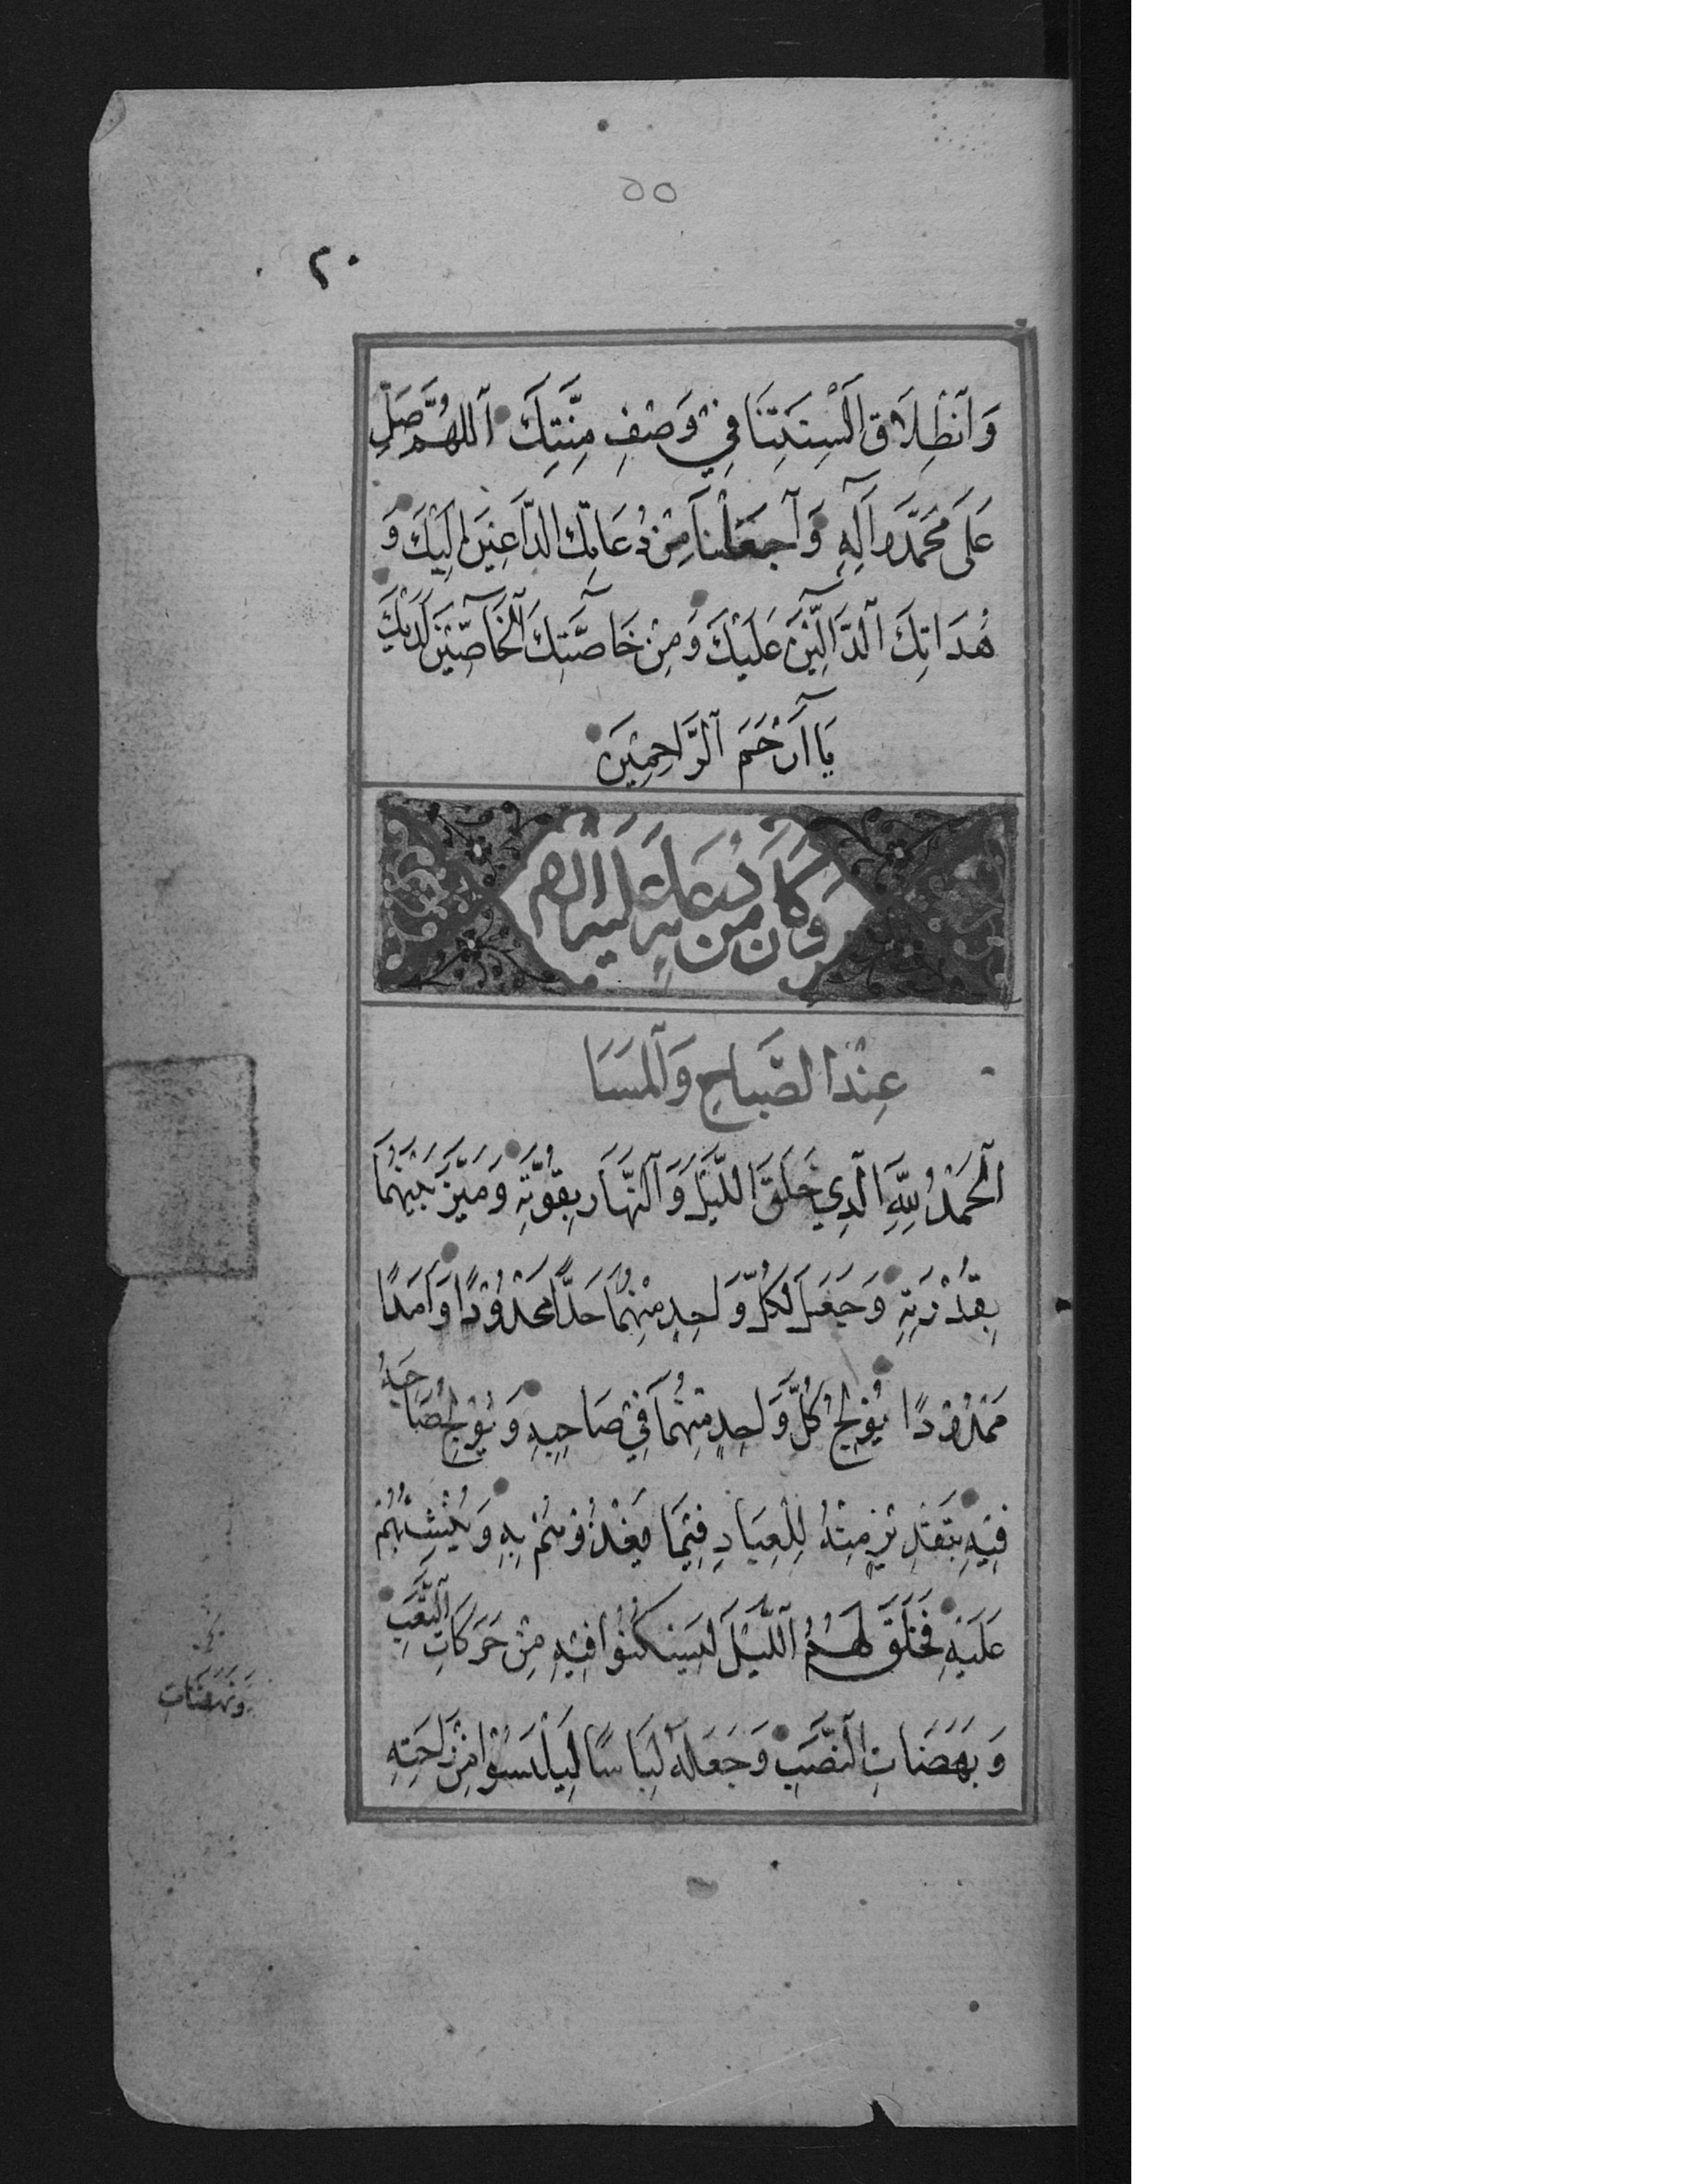 ٥٥
٢٠
وَٱنْطِلَاقَ اَلْسِنَتِنَا فِيْ وَصْفِ مِنَّتِكَ اَللّٰهُمَّ صَلِّ
عَلَى مُحَمَّدٍ وَاٰلِهٖ وَاجْعَلْنَا مِنْ دُعَاتِكَ الدَّاعِيْنَ اِلَيْكَ وَ
هُدَاتِكَ الدَّالِّيْنَ عَلَيْكَ وَمِنْ خَاصَّتِكَ الْخَاصِّيْنَ لَدَيْكَ
يَا اَرْحَمَ الرَّاحِمِيْنَ
وَكَانَ مِنْ دُعَائِهِ عَلَيْهِ السَّلَام
عِنْدَ الصَّبَاحِ وَالْمَسَا
اَلْحَمْدُ لِلّٰهِ الَّذِي خَلَقَ اللَّيْلَ وَالنَّهَارَ بِقُوَّتِهِ وَمَيَّزَ بَيْنَهُمَا
بِقُدْرَتِهِ وَجَعَلَ لِكُلِّ وَاحِدٍ مِنْهُمَا حَدًّا مَحْدُوْدًا وَاَمَدًا
مَمْدُوْدًا يُوْلِجُ كُلَّ وَاحِدٍ مِنْهُمَا فِيْ صَاحِبِهِ وَيُوْلِجُ صَاحِبَهُ
فِيْهِ بِتَقْدِيْرٍ مِنْهُ لِلْعِبَادِ فِيْمَا يَغْذُوْهُمْ بِهِ وَيُنْشِئُهُمْ
عَلَيْهِ فَخَلَقَ لَهُمُ اللَّيْلَ لِيَسْكُنُوْا فِيْهِ مِنْ حَرَكَاتِ التَّعَبِ
وَبَهَضَاتِ النَّصَبِ وَجَعَلَهُ لِبَاسًا لِيَلْبَسُوْا مِنْ رَاحَتِهِ
وَنَهَضَاتِ